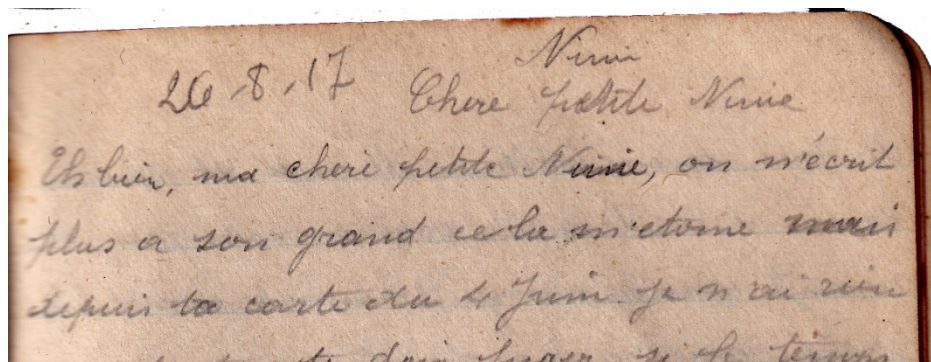 Ninie
26.8.17 Chere petite Ninie
Eh bien, ma chere petite Ninie, on n'ecrit
plus a son grand cela m'etone mais
depuis ta carte du 4 Juin je n'ai rien
juger si le temps